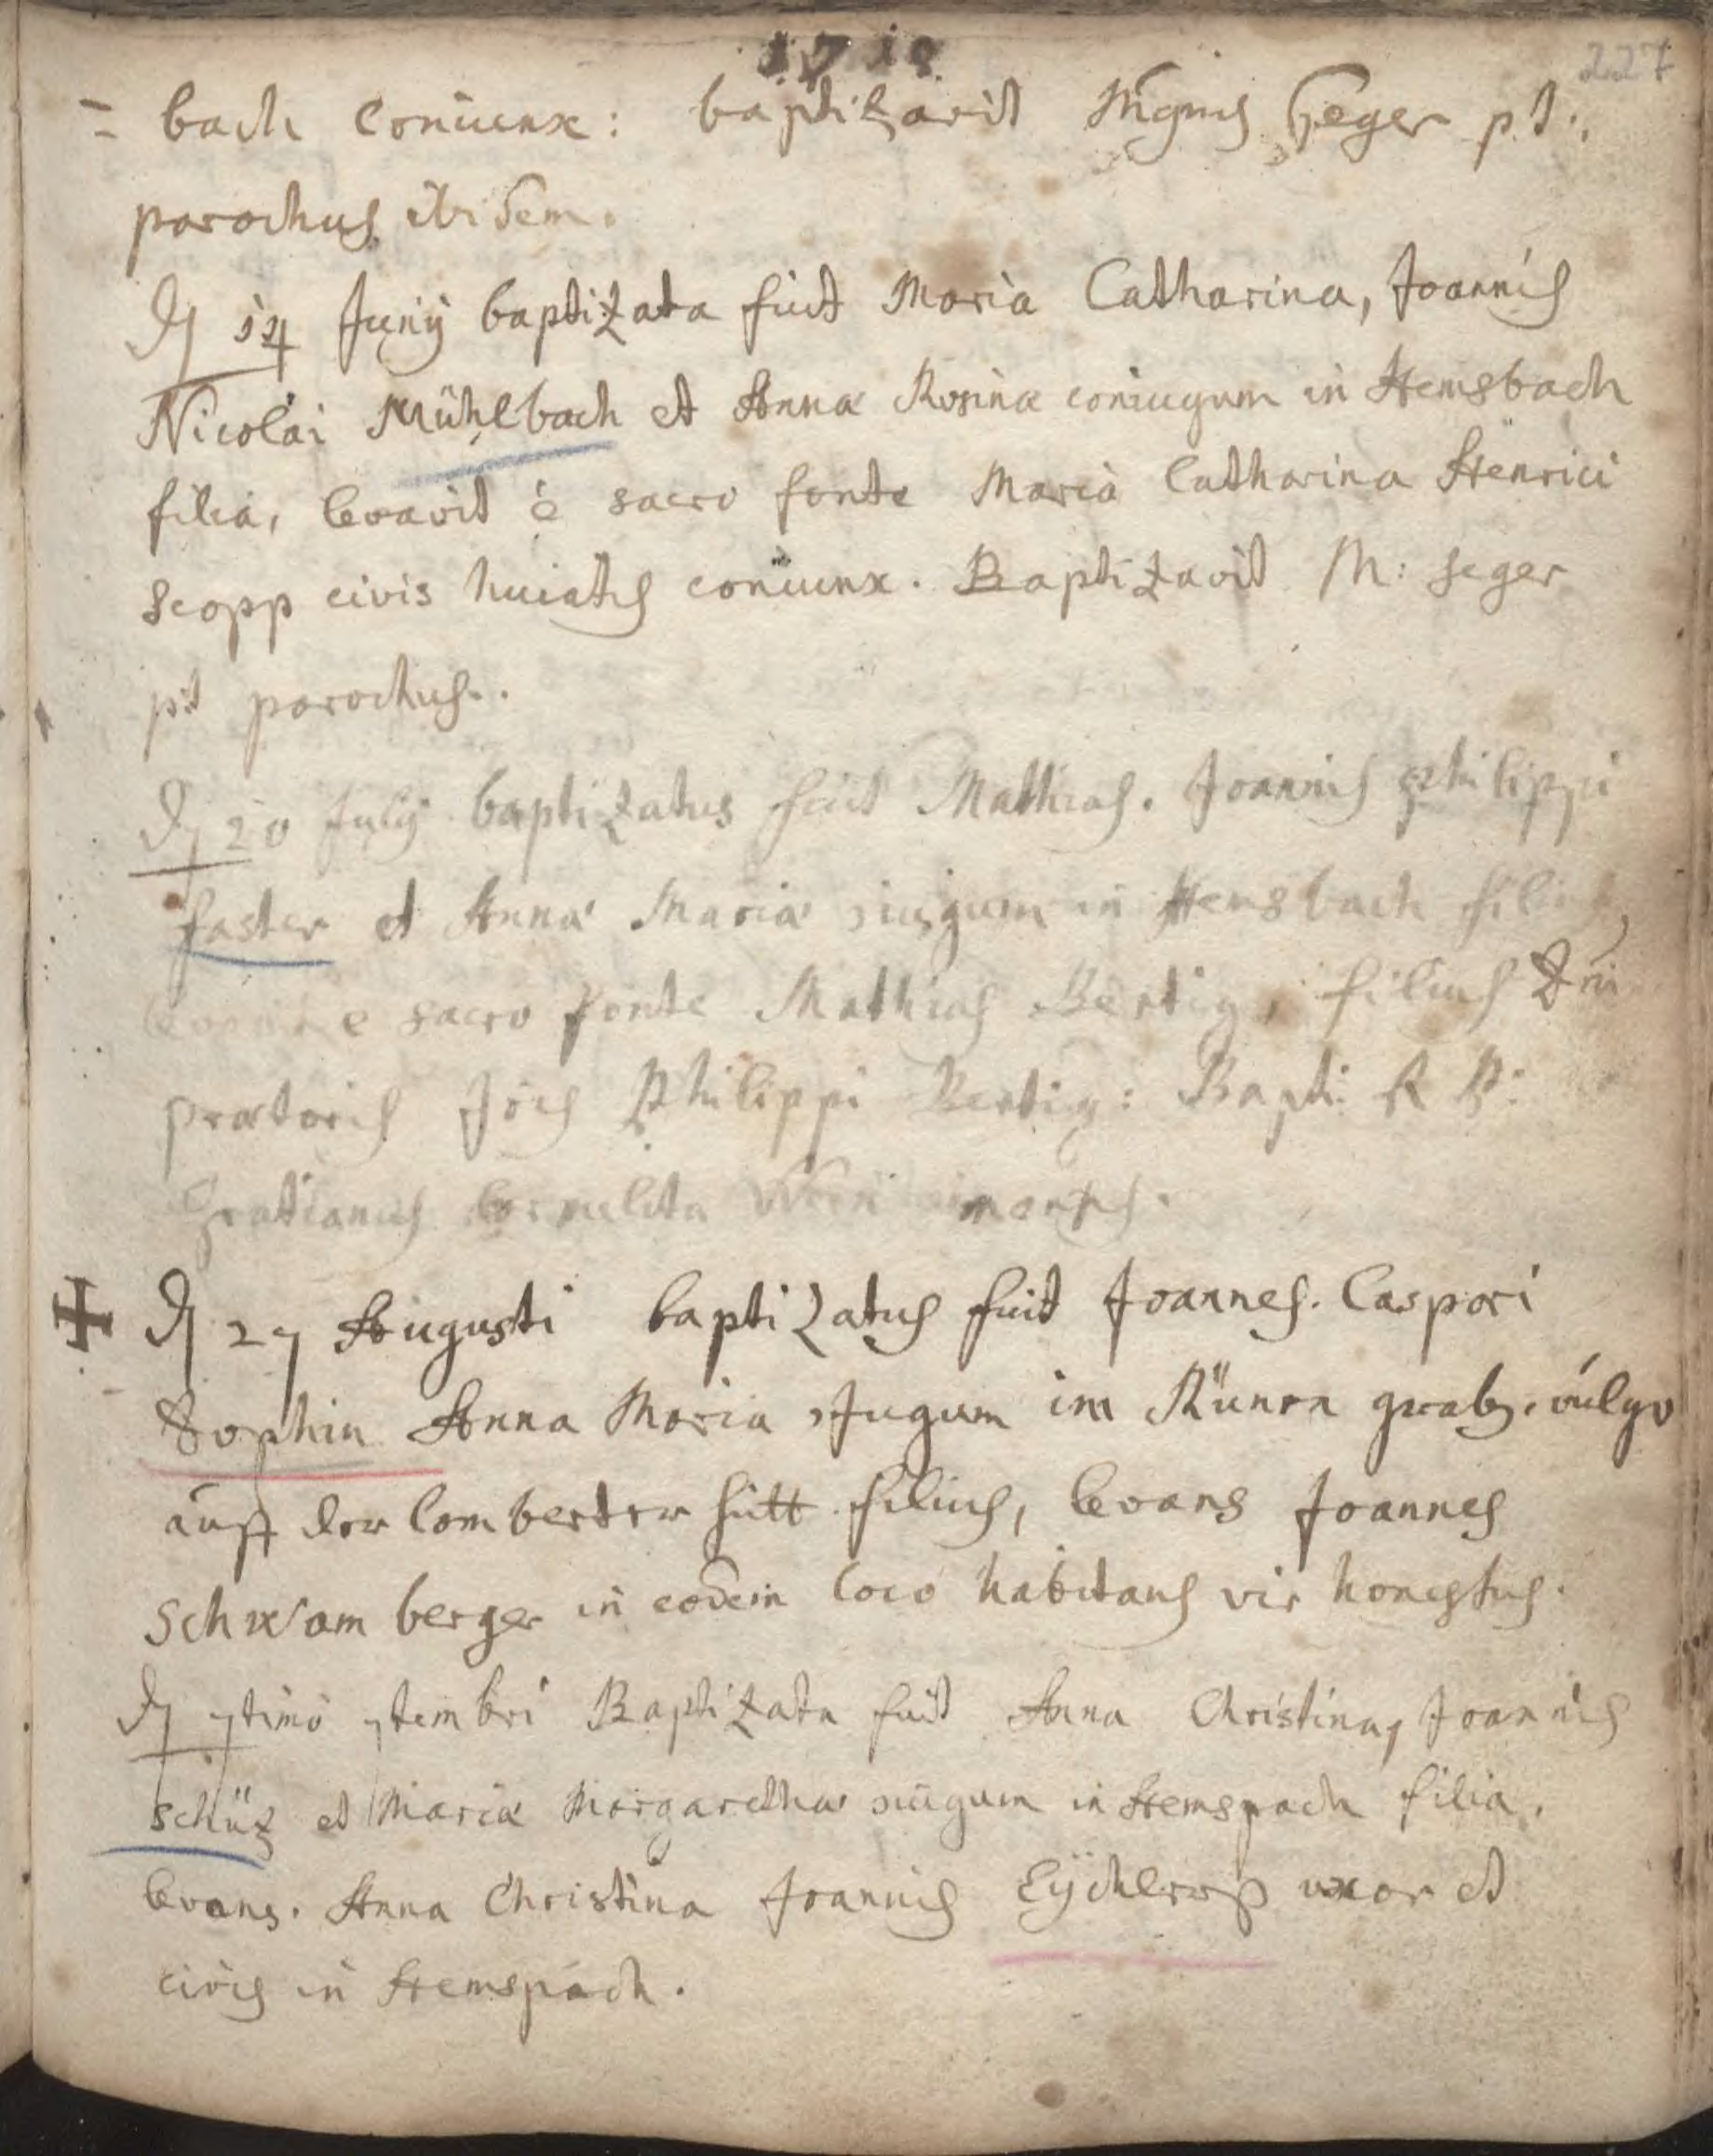 1718
227
= bach coniunx: baptizavit Mgnus Geger p.t.
parochus ibidem.
D 14 Junij baptizata fuit Maria Catharina, Joannis
Nicolai Mühlbach et Annæ Rosinæ coniugum in Hemsbach
filia, levavit è sacro fonte Maria Catharina Henrici
scopp civis huiatis coniunx. Baptizavit M: seger
pt parochus.
D 20 Julij baptizatus fuit Mathias. Joannis Philippi
faster et Annæ Mariæ Jugum in Hemsbach filius
e sacro fonte Mathias Bertig, filius Dni
prætoris Jois Philippi Bertig: Bapti R P:
Gratianus
✠ D 27 Augusti baptizatus fuit Joannes. Caspari
Sophin Anna Maria Jugum im Künen grab, vulgo
auff der lomberter hütt filius, levans Joannes
Schwam berger in eodem loco habitans vir honestus.
D 7timo 7tembri Baptizata fuit Anna Christina, Joannis
schüz et Mariæ Margarethæ Jugum in Hemspach filia.
levans. Anna Christina Joannis Eÿchlerß uxor et
civis in Hemspach.